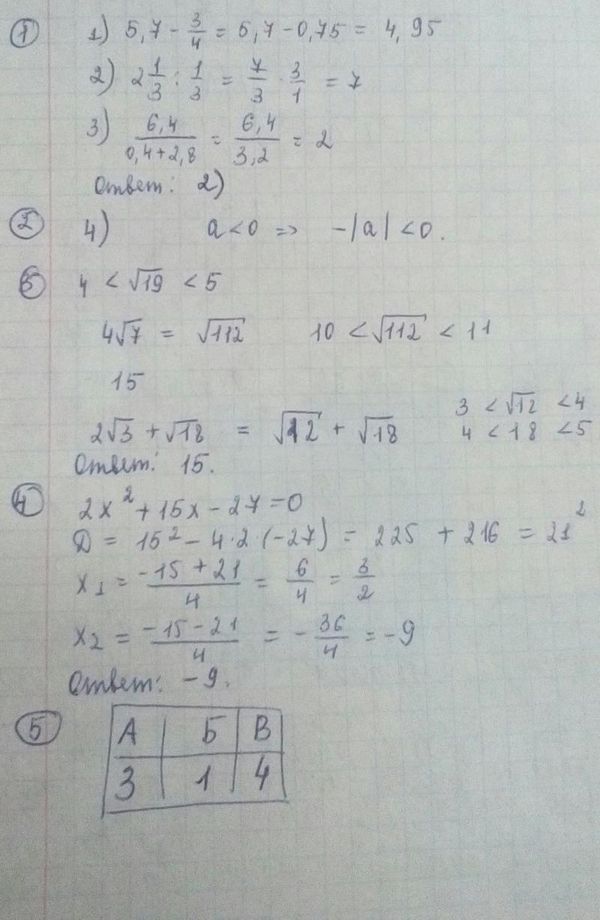 ① 1) 5,7 - 3/4 = 5,7 - 0,75 = 4,95
2) 2 1/3 : 1/3 = 7/3 · 3/1 = 7
3) 6,4/(0,4+2,8) = 6,4/3,2 = 2
Ответ: 2)
② 4) a<0 => -|a| <0.
③ 4 < √19 < 5
4√7 = √112 10 < √112 < 11
15
2√3 + √18 = √12 + √18 3 < √12 < 4
4 < 18 < 5
Ответ: 15.
④ 2x² + 15x - 27 = 0
D = 15² - 4·2·(-27) = 225 + 216 = 21²
x₁ = (-15 + 21)/4 = 6/4 = 3/2
x₂ = (-15 - 21)/4 = - 36/4 = -9
Ответ: -9.
⑤ А Б В
3 1 4